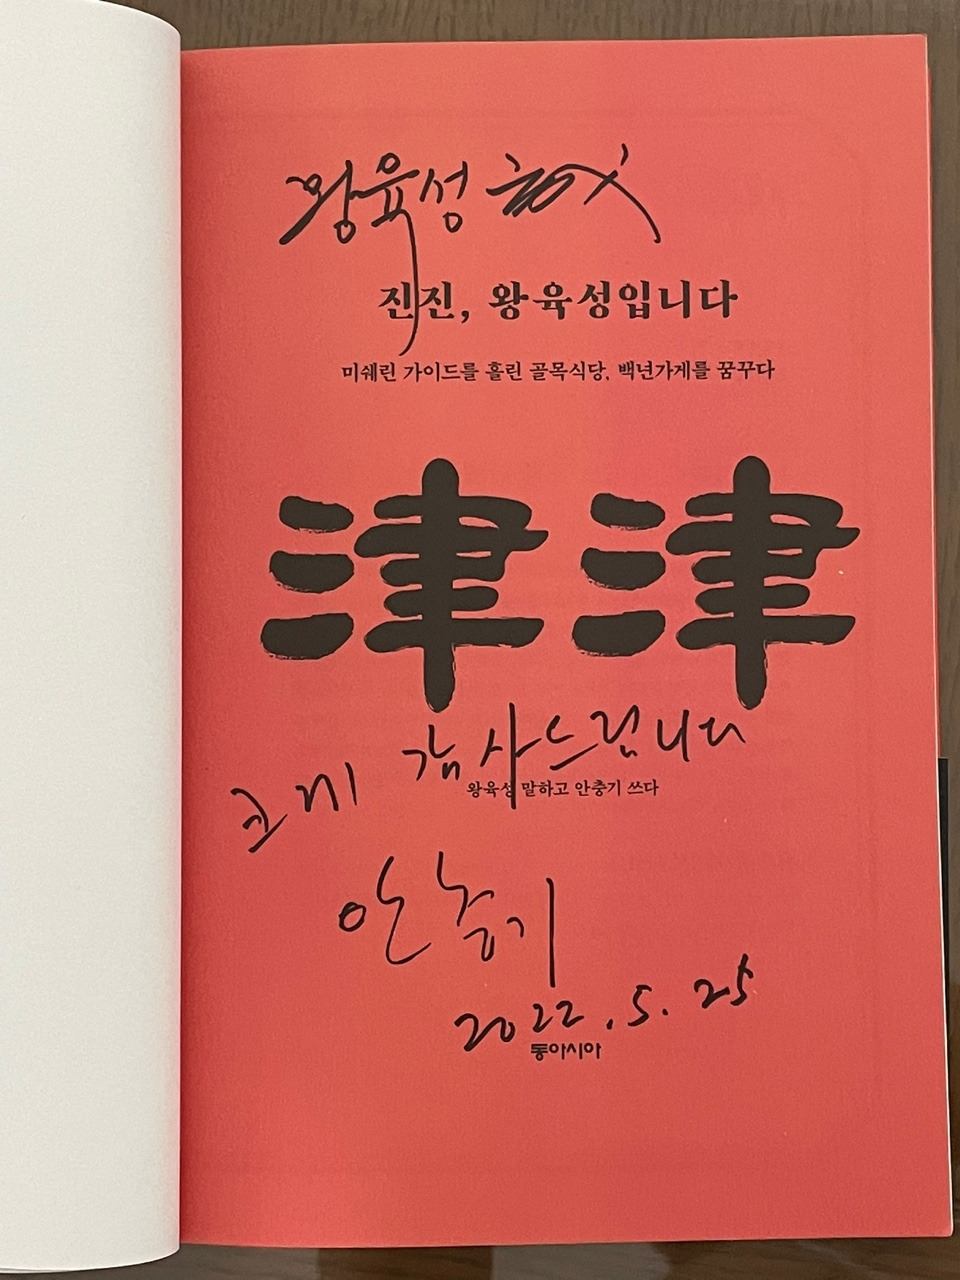 왕육성
진진, 왕육성입니다
미쉐린 가이드를 홀린 골목식당, 백년가게를 꿈꾸다
津津
크게 감사드립니다
왕육성 말하고 안충기 쓰다
안충기
2022. 5. 25
동아시아